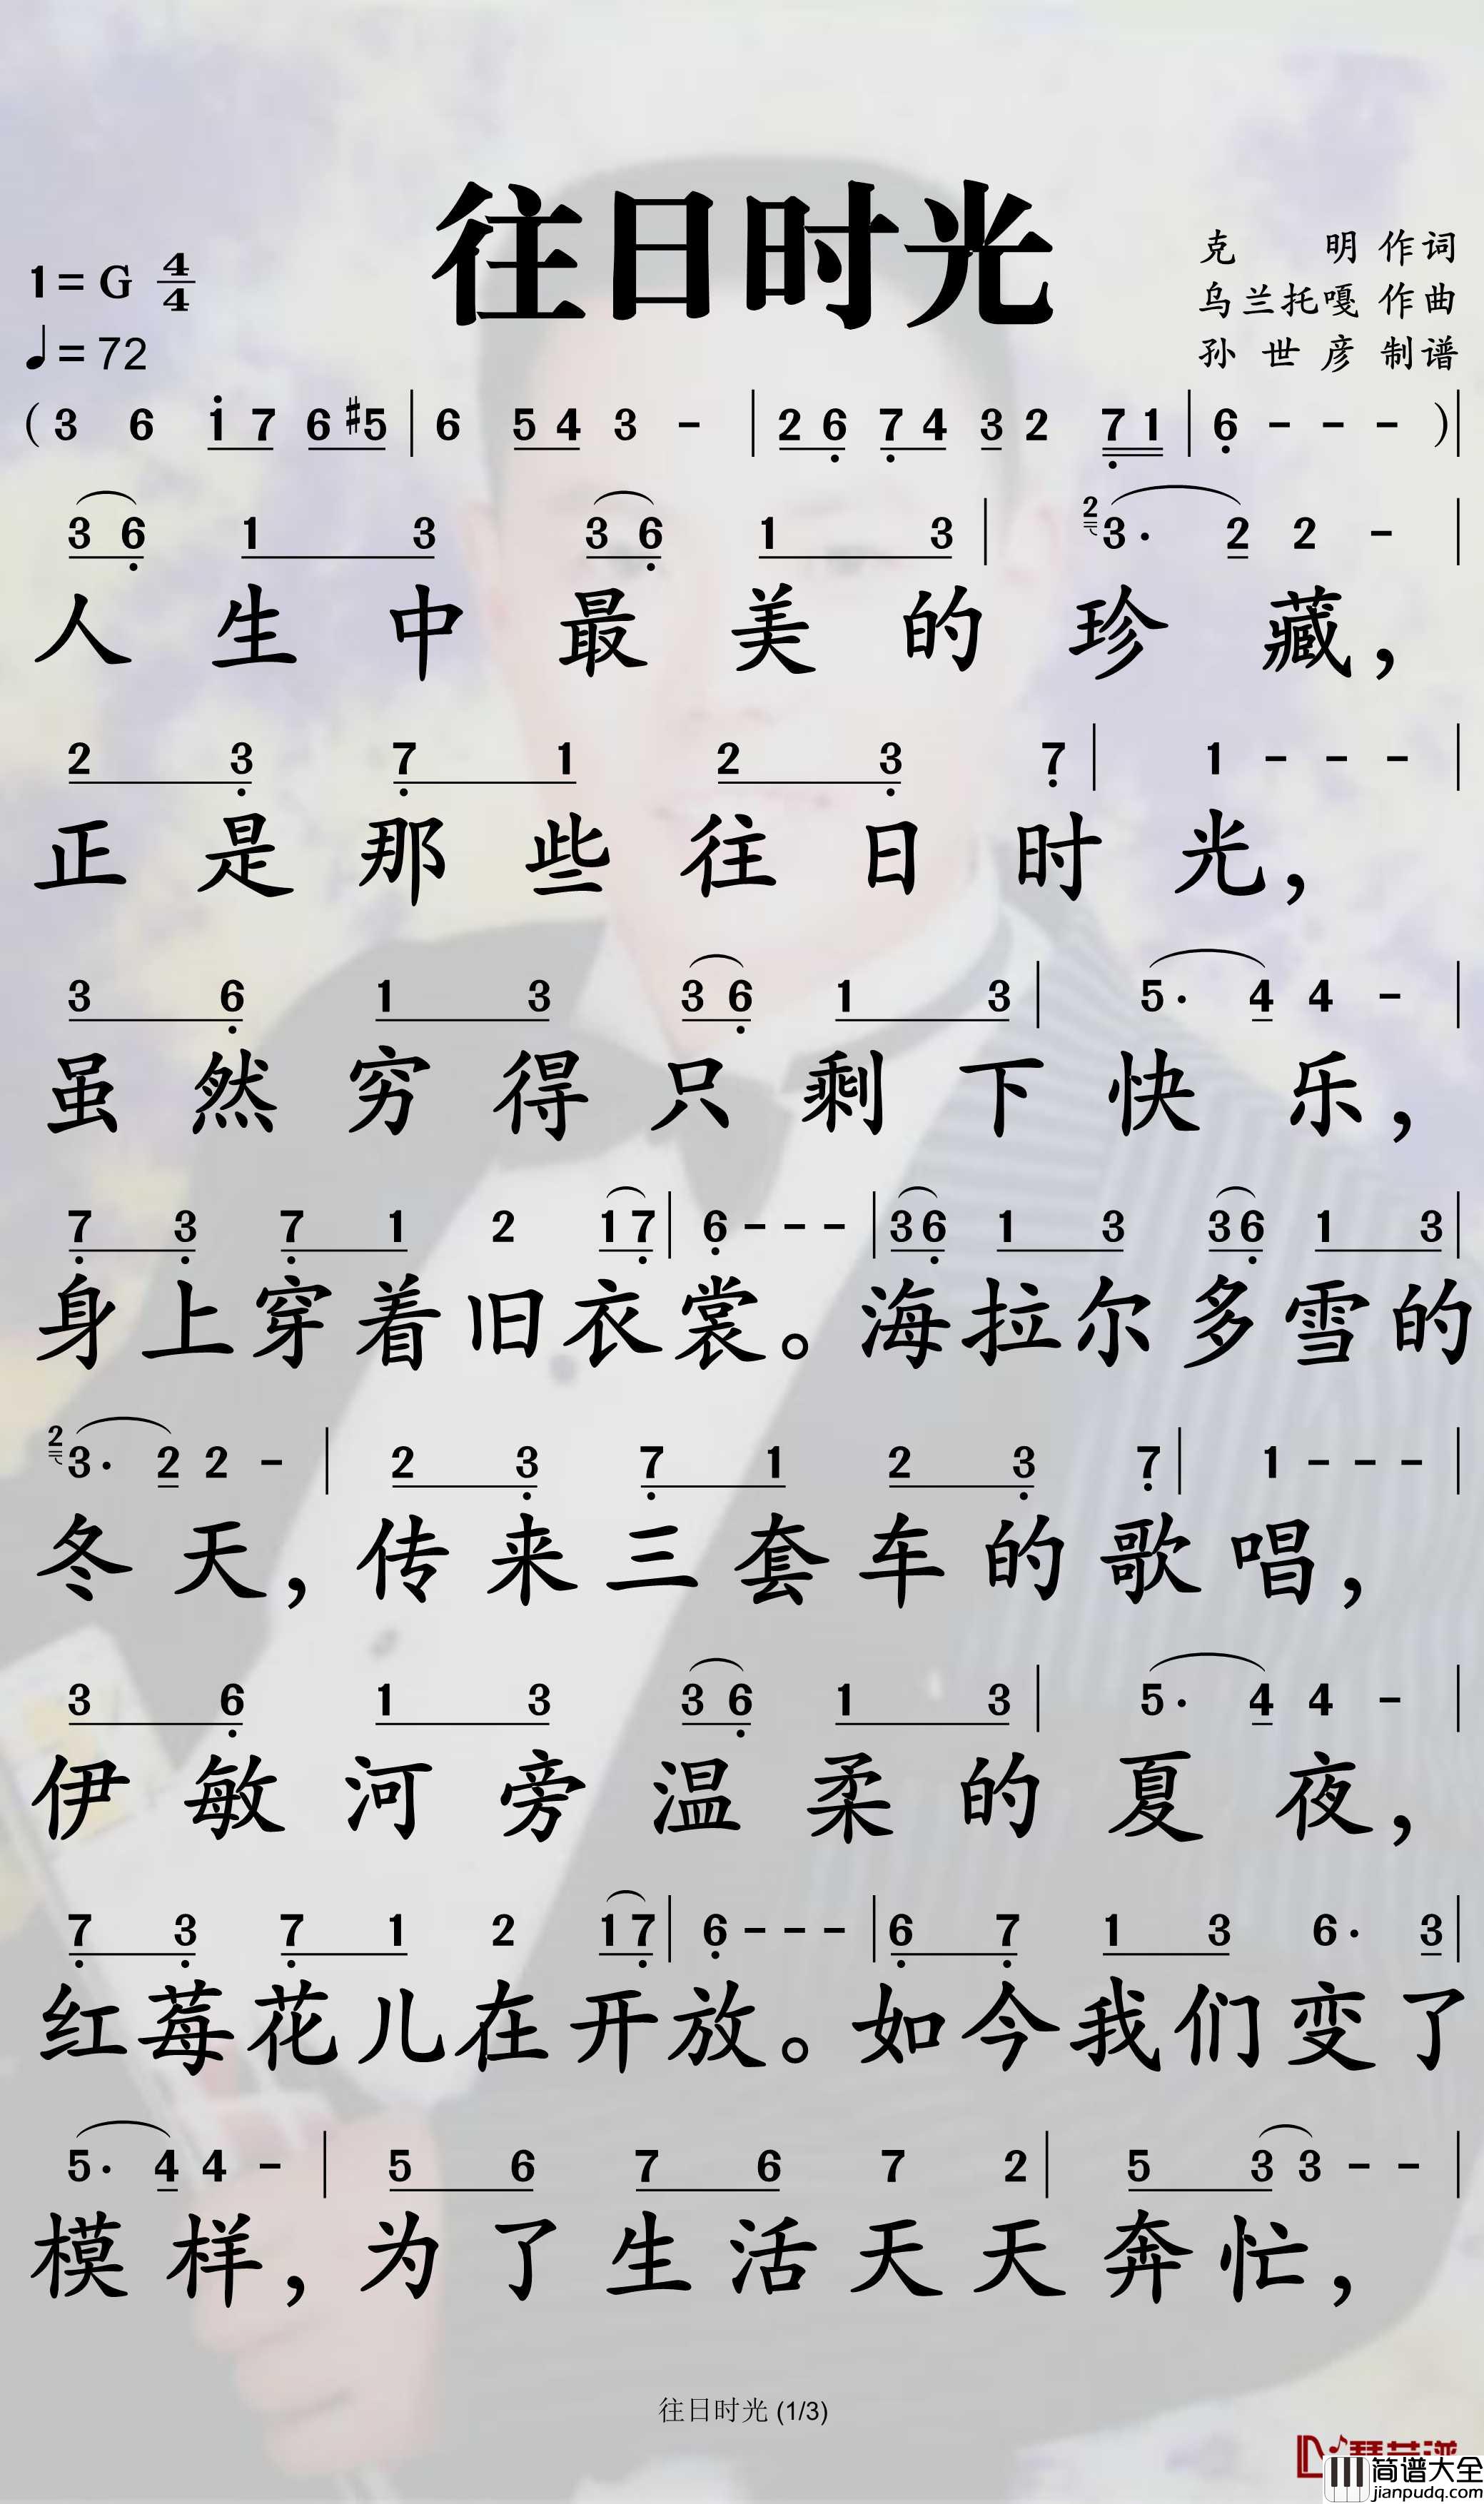 往日时光
1=G 4/4
♩=72
克 明 作词
乌兰托嘎 作曲
孙世彦 制谱
(3 6 1 7 6 #5 | 6 5 4 3 - | 2 6 7 4 3 2 7 1 | 6 - - - )|
3 6 1 3 3 6 1 3 | 2 3· 2 2 - |
人生中最美的珍藏，
2 3 7 1 2 3 7 | 1 - - - |
正是那些往日时光，
3 6 1 3 3 6 1 3 | 5· 4 4 - |
虽然穷得只剩下快乐，
7 3 7 1 2 1 7 | 6 - - - | 3 6 1 3 3 6 1 3 |
身上穿着旧衣裳。海拉尔多雪的
2 3· 2 2 - | 2 3 7 1 2 3 7 | 1 - - - |
冬天，传来三套车的歌唱，
3 6 1 3 3 6 1 3 | 5· 4 4 - |
伊敏河旁温柔的夏夜，
7 3 7 1 2 1 7 | 6 - - - | 6 7 1 3 6· 3 |
红莓花儿在开放。如今我们变了
5· 4 4 - | 5 6 7 6 7 2 | 5 3 3 - - |
模样，为了生活天天奔忙，
往日时光 (1/3)
简谱大全
jianpudq.com